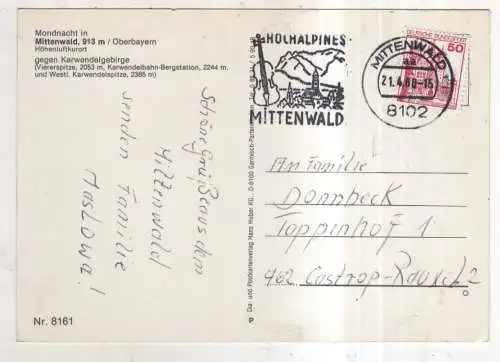 Mondnacht in
Mittenwald, 913 m / Oberbayern
Höhenluftkurort
gegen Karwendelgebirge
(Viererspitze, 2053 m, Karwendelbahn-Bergstation, 2244 m,
und Westl. Karwendelspitze, 2385 m)
Schöne Grüße aus dem
Mittenwald
senden Familie
Maslowa!
Nr. 8161
Dia- und Postkartenverlag Hans Huber KG., D-8100 Garmisch-Parten
P
HOCHALPINES
MITTENWALD
MITTENWALD
21.4.80-15
8102
DEUTSCHE BUNDESPOST
50
An Familie
Dombeck
Toppenhof 1
462 Castrop-Rauxel 2